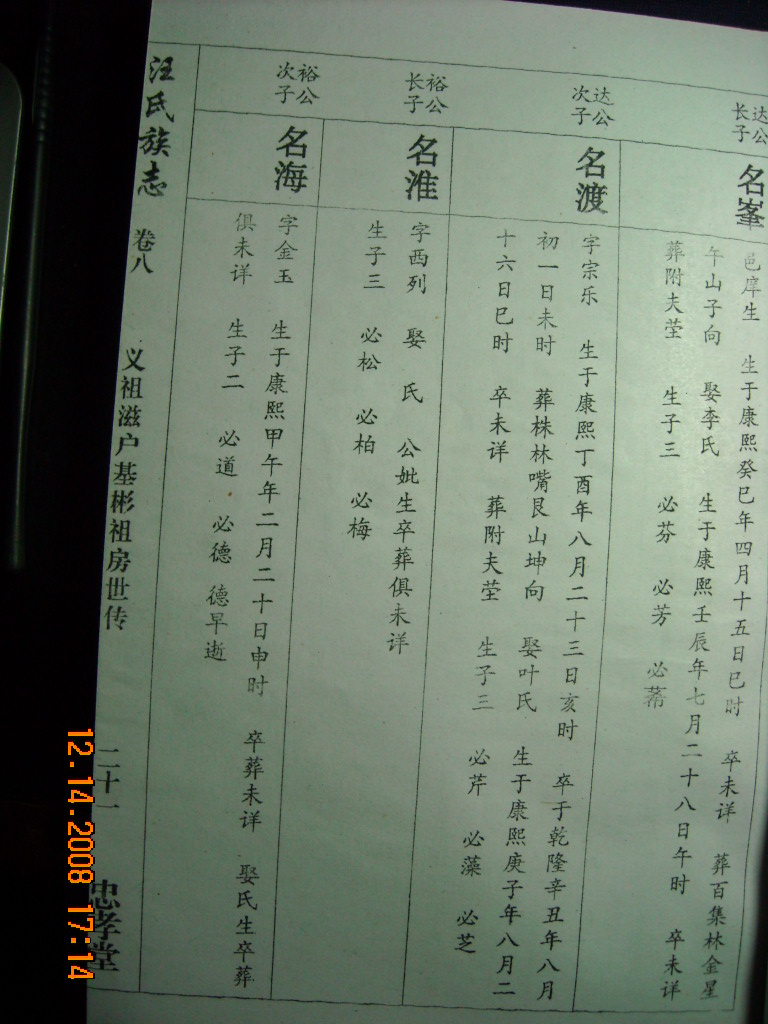 达公
长子
名峯
邑庠生 生于康熙癸巳年四月十五日巳时 卒未详 葬百集林金星
午山子向 娶李氏 生于康熙壬辰年七月二十八日午时 卒未详
葬附夫茔 生子三 必芬 必芳 必芾
达公
次子
名渡
字宗乐 生于康熙丁酉年八月二十三日亥时 卒于乾隆辛丑年八月
初一日未时 葬株林嘴艮山坤向 娶叶氏 生于康熙庚子年八月二
十六日巳时 卒未详 葬附夫茔 生子三 必芹 必藻 必芝
裕公
长子
名淮
字西列 娶 氏 公妣生卒葬俱未详
生子三 必松 必柏 必梅
裕公
次子
名海
字金玉 生于康熙甲午年二月二十日申时 卒葬未详 娶氏生卒葬
俱未详 生子二 必道 必德 德早逝
汪氏族志 卷八 义祖滋户基彬祖房世传 二十一 忠孝堂
12.14.2008 17:14